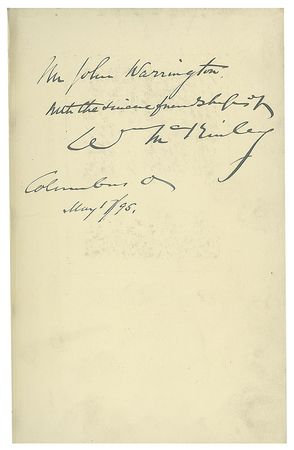 Mr John Warrington.
with the sincere friendship of
Wm McKinley
Columbus O
May 1st/95.